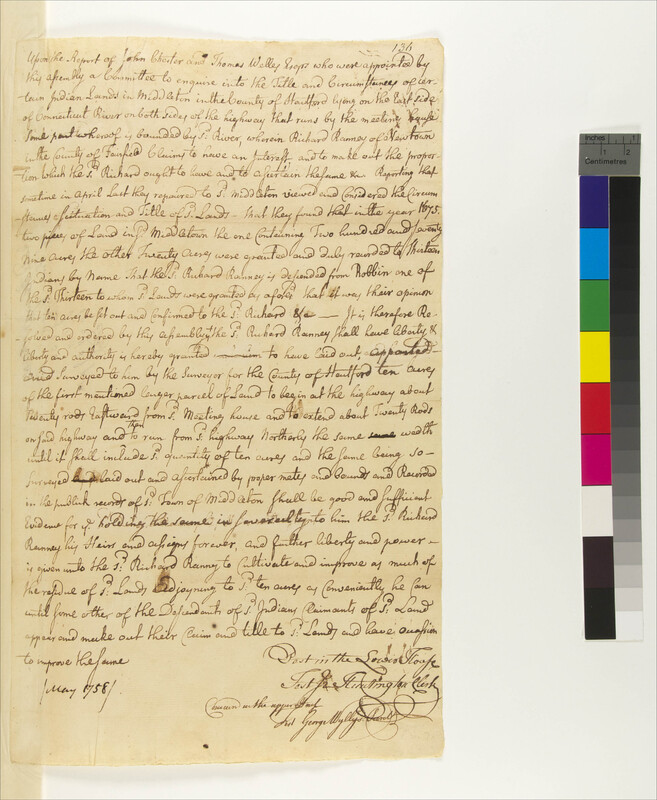 136
Upon the Report of John Chester and Thomas Welles Esqrs who were appointed by
this Assembly a Committee to enquire into the Title and Circumstances of cer-
tain Indian Lands in Middleton in the County of Hartford lying on the East side
of Connecticut River on both sides of the highway that runs by the meeting house
some part whereof is bounded by sd River, wherein Richard Ranney of Newtown
in the County of Fairfield Claims to have an Interest, and to make out the propor-
tion which the sd Richard ought to have and to assertain the same &c Reporting that
sometime in April Last they repaired to sd Middleton viewed and Considered the Circum
stances scituation and Title of sd Lands - that they found that in the year 1675.
two pieces of Land in sd Middletown the one Containing Two hundred and seventy
Nine acres the other Twenty acres were granted and duly recorded to Thirteen
Indians by Name That the sd Richard Ranney is descended from Robbin one of
the sd Thirteen to whom sd Lands were granted as aforesd that it was their opinion
that ten acres be set out and confirmed to the sd Richard &c — It is therefore Re-
solved and ordered by this Assembly, the sd Richard Ranney shall have liberty &
liberty and authority is hereby granted him to have laid out,
and surveyed to him by the Surveyor for the County of Hartford ten acres
of the first mentioned larger parcel of Land to begin at the highway about
twenty rods Eastward from sd Meeting house and to extend about Twenty Rods
on said highway and then to run from sd highway Northerly the same same wedth
until it shall include sd quantity of ten acres and the same being so-
surveyed and laid out and assertained by proper metes and bounds and Recorded
in the publick records of sd Town of Middleton shall be good and sufficient
Evidence for ye holding the same in severalty to him the sd Richard
Ranney his Heirs and assigns forever, and further liberty and power -
is given unto the sd Richard Ranney to Cultivate and improve as much of
the residue of sd Lands adjoyning to sd ten acres as Conveniently he can
until some other of the Descendants of sd Indians Claimants of sd Land
appear and make out their Claim and title to sd Lands and have occassion
to improve the same
Past in the Lower House
Test Huntington Clerk
/May 1758/
Concurd in the upper House
Test George Wyllys Secrety
Inches
1
2
Centimetres